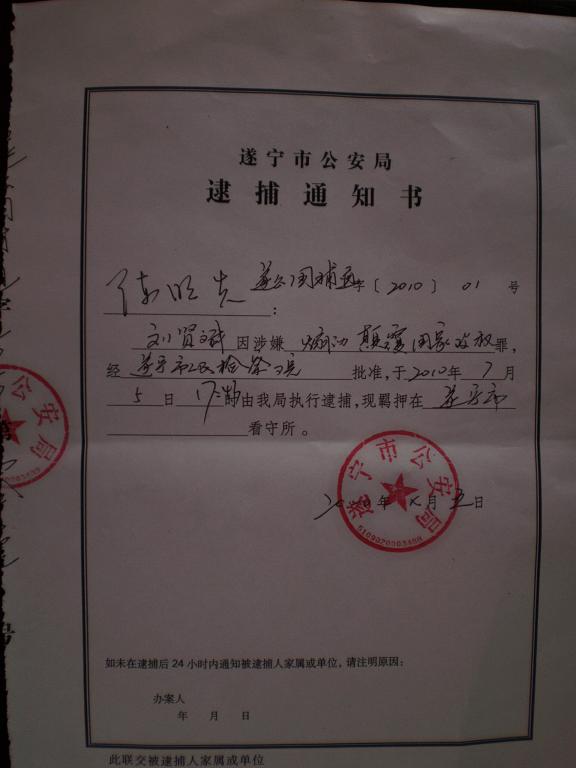 遂宁市公安局
逮捕通知书
遂公国捕通字〔2010〕01号
陈明先:
刘贤斌因涉嫌煽动颠覆国家政权罪,
经遂宁市人民检察院批准,于2010年7月
5日17时由我局执行逮捕,现羁押在遂宁市
看守所。
遂宁市公安局
年 月 五日
如未在逮捕后24小时内通知被逮捕人家属或单位,请注明原因:
办案人
年 月 日
此联交被逮捕人家属或单位
公安局